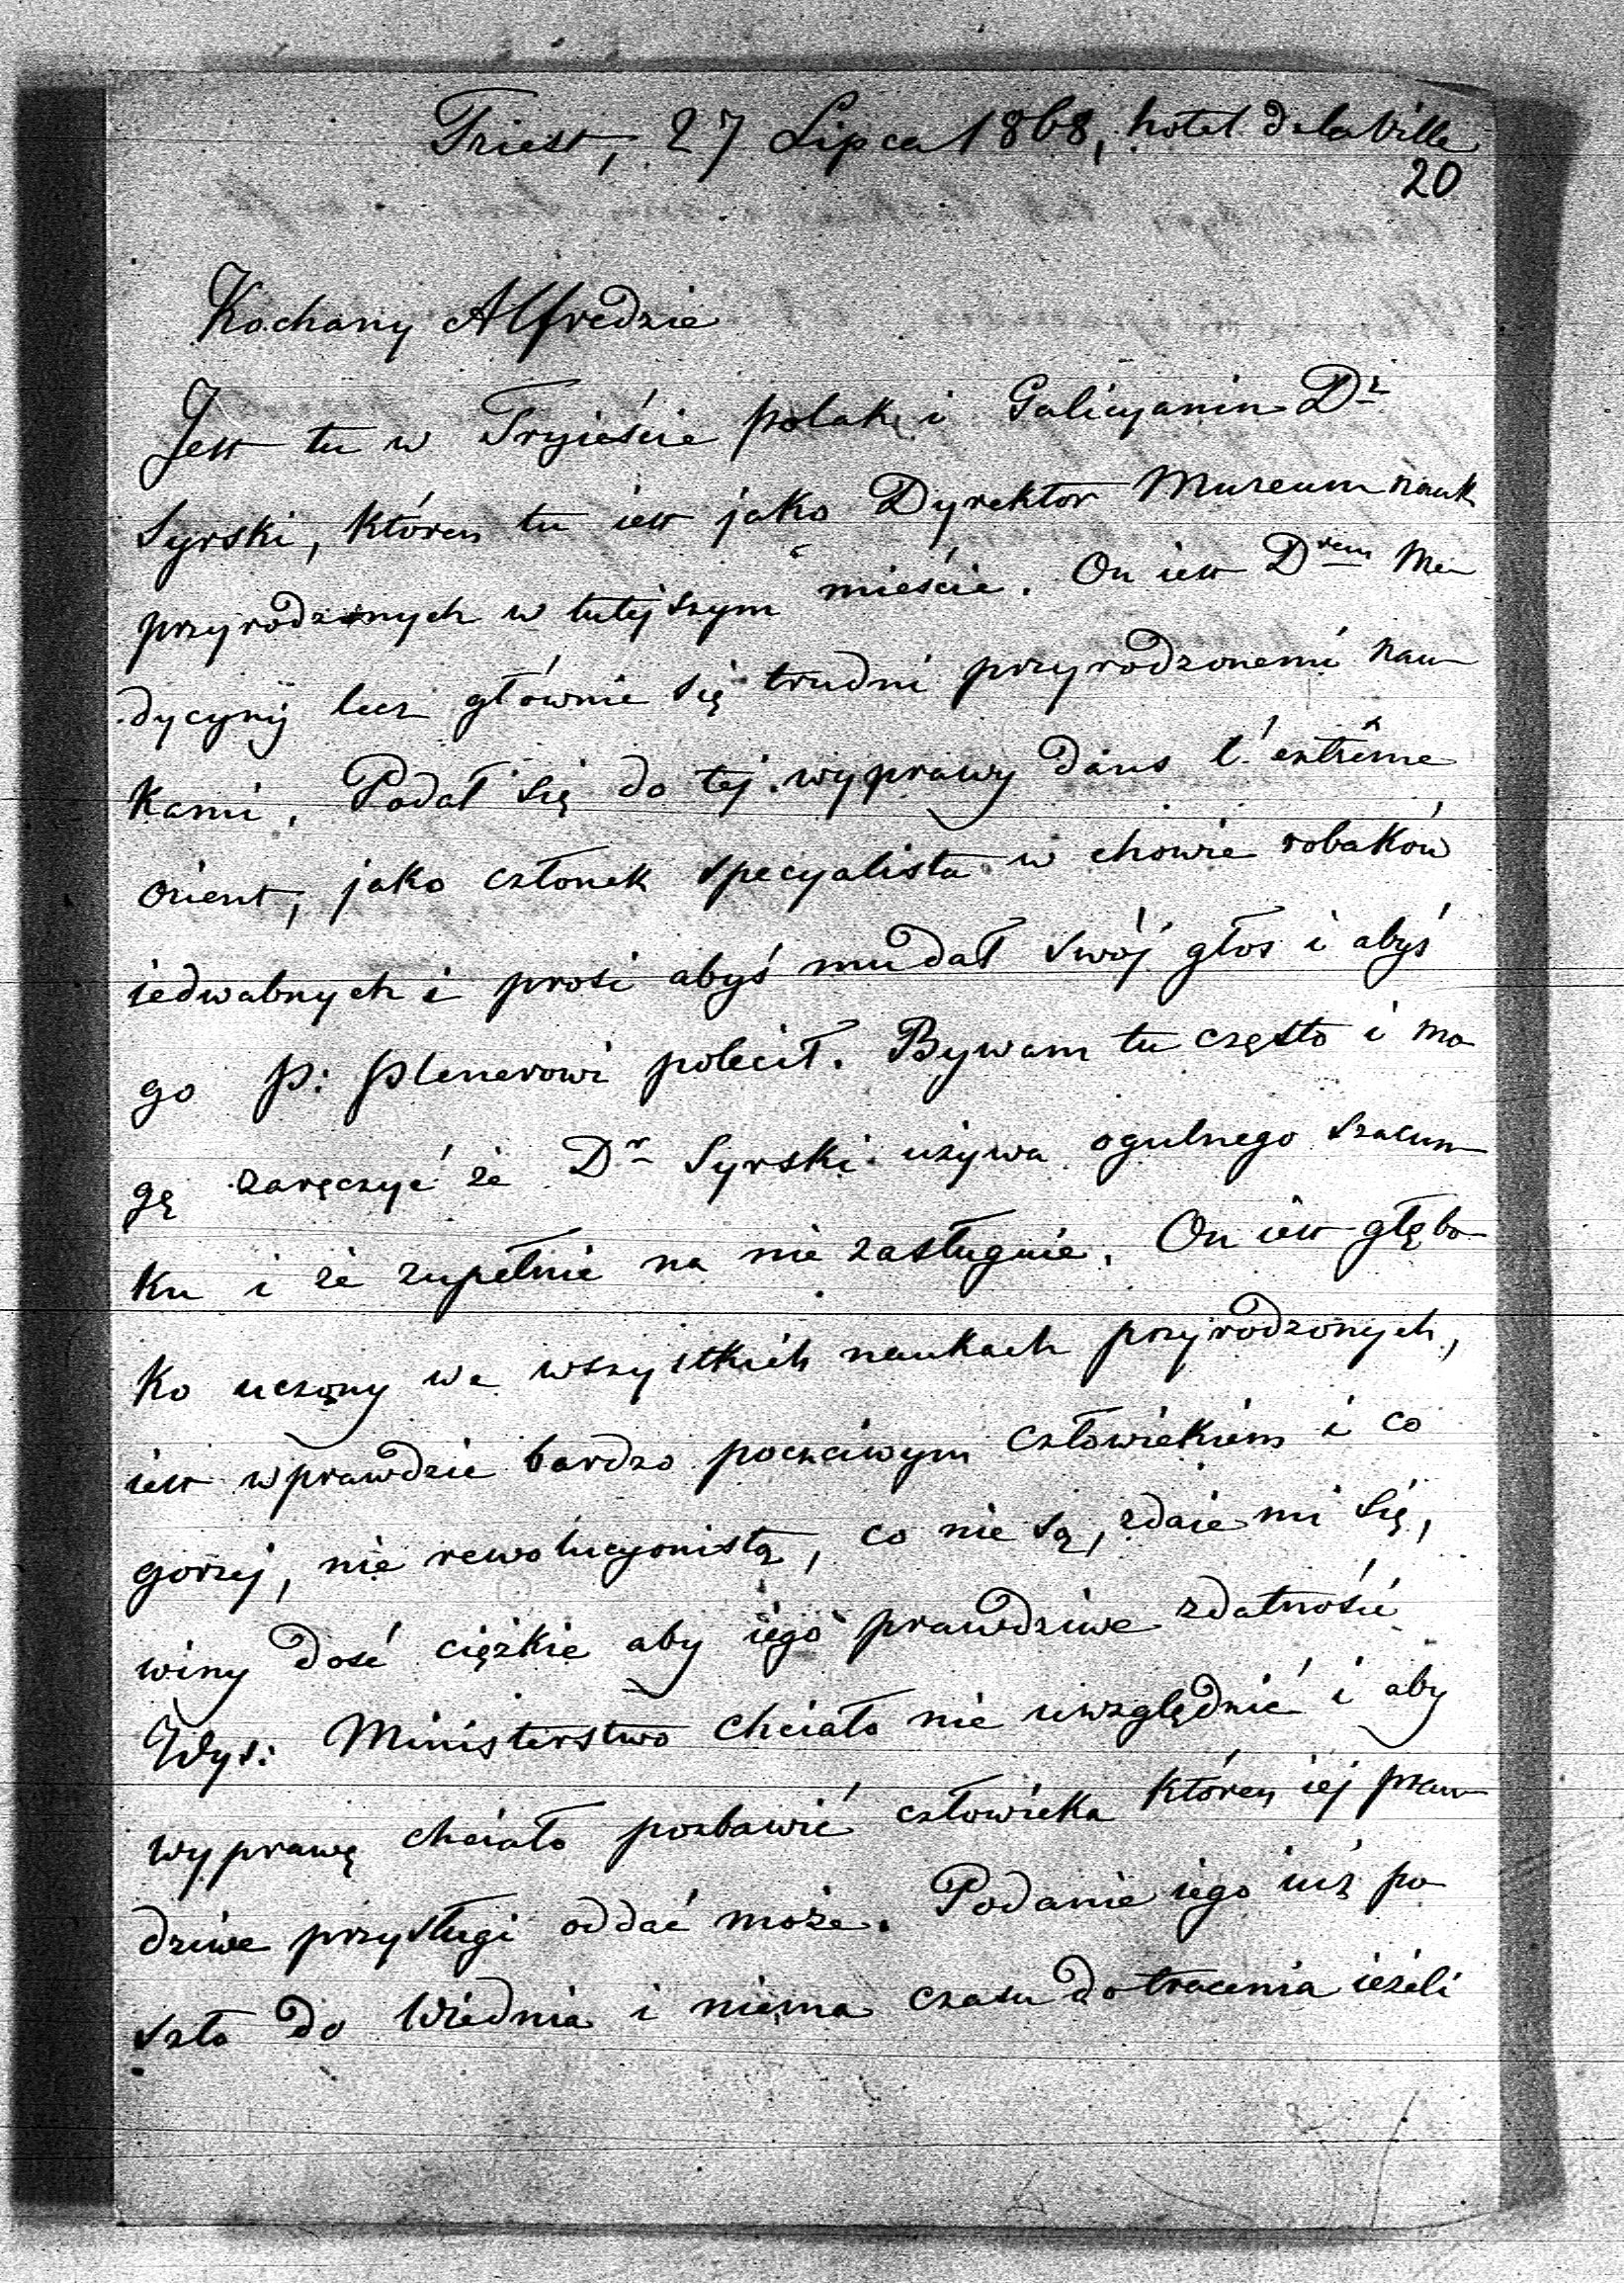 Triest, 27 Lipca 1868, hotel de la Ville
20
Kochany Alfredzie
Jest tu w Tryieście polak i Galicyanin Dr
Syrski, któren tu iest jako Dyrektor Museum nauk
przyrodzonych w tutejszym mieście. On iest Drem Me-
dycyny lecz głównie się trudni przyrodzonemi nau-
kami. Podał się do tej wyprawy dans l'extrême
orient, jako członek specyalista w chowie robaków
iedwabnych i prosi abyś mu dał swój głos i abyś
go P: Plenerowi polecił. Bywam tu często i mo-
gę zaręczyć że Dr Syrski używa ogulnego szacun-
ku i że zupełnie na nie zasługuie. On iest głębo-
ko uczony we wszystkich naukach przyrodzonych,
iest wprawdzie bardzo poczciwym człowiekiem i co
gorzej, nie rewolucyonistą, co nie są, zdaie mi się,
winy dość ciężkie aby iego prawdziwe zdatności
Wys: Ministerstwo chciało nie uwzględnić i aby
wyprawę chciało pozbawić człowieka któren iej praw-
dziwe przysługi oddać może. Podanie iego iuż po-
szło do Wiednia i niema czasu do tracenia ieżeli